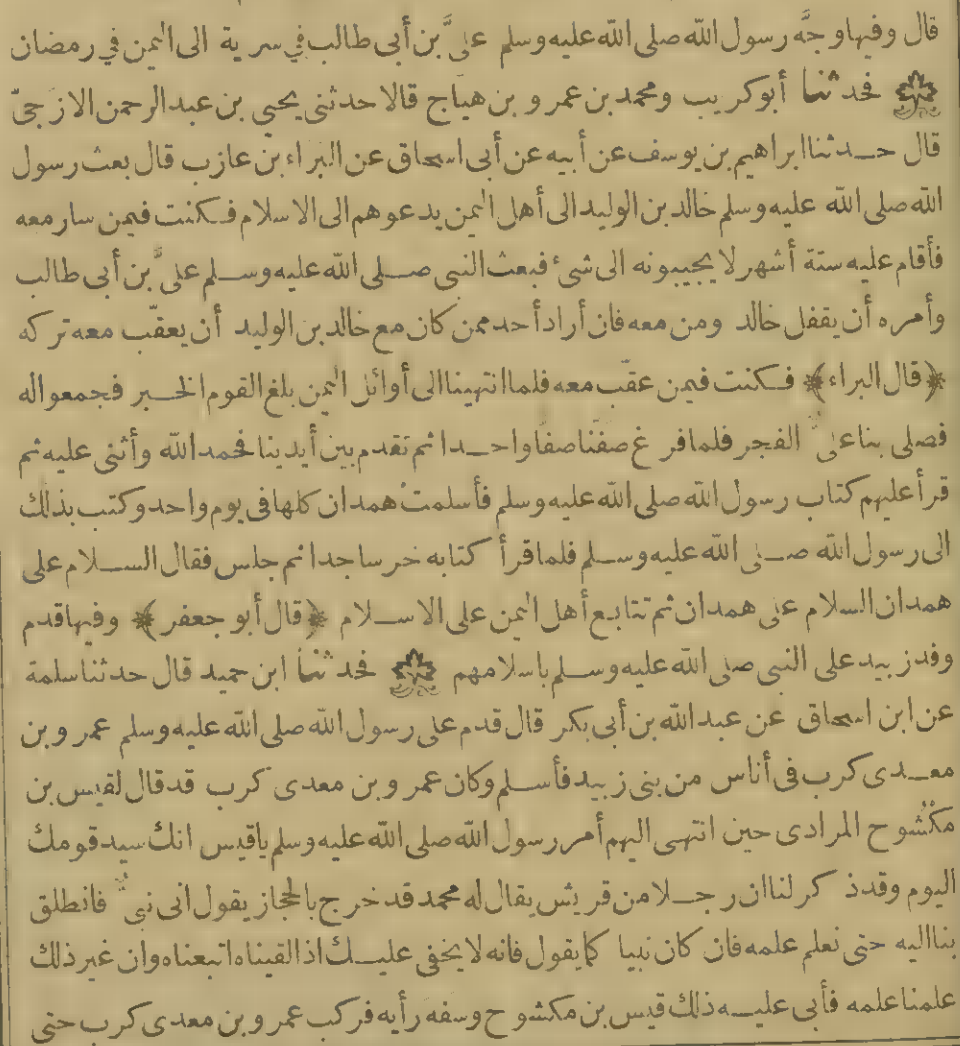 قال وفيها وجَّه رسول الله صلى الله عليه وسلم علىَّ بن أبى طالب فى سرية الى اليمن فى رمضان
فحدثنا أبوكريب ومحمد بن عمرو بن هياج قالا حدثنى يحيى بن عبد الرحمن الازجىّ
قال حدثنا ابراهيم بن يوسف عن أبيه عن أبى اسحاق عن البراء بن عازب قال بعث رسول
الله صلى الله عليه وسلم خالد بن الوليد الى أهل اليمن يدعوهم الى الاسلام فكنت فيمن سار معه
فأقام عليه ستة أشهر لا يجيبونه الى شىء فبعث النبى صلى الله عليه وسلم علىَّ بن أبى طالب
وأمره أن يقفل خالد ومن معه فان أراد أحد ممن كان مع خالد بن الوليد أن يعقّب معه تركه
﴿قال البراء﴾ فكنت فيمن عقّب معه فلما انتهينا الى أوائل اليمن بلغ القوم الخبر فجمعوا له
فصلى بنا علىّ الفجر فلما فرغ صفّنا صفا واحدا ثم تقدم بين أيدينا فحمد الله وأثنى عليه ثم
قرأ عليهم كتاب رسول الله صلى الله عليه وسلم فأسلمت همدان كلها فى يوم واحد وكتب بذلك
الى رسول الله صلى الله عليه وسلم فلما قرأ كتابه خر ساجدا ثم جلس فقال السلام على
همدان السلام على همدان ثم تتابع أهل اليمن على الاسلام ﴿قال أبو جعفر﴾ وفيها قدم
وفد زبيد على النبى صلى الله عليه وسلم باسلامهم فحدثنا ابن حميد قال حدثنا سلمة
عن ابن اسحاق عن عبد الله بن أبى بكر قال قدم على رسول الله صلى الله عليه وسلم عمرو بن
معدى كرب فى أناس من بنى زبيد فأسلم وكان عمرو بن معدى كرب قد قال لقيس بن
مكْشُوح المرادى حين انتهى اليهم أمر رسول الله صلى الله عليه وسلم ياقيس انك سيد قومك
اليوم وقد ذكر لنا ان رجلا من قريش يقال له محمد قد خرج بالحجاز يقول انى نبىٌّ فانطلق
بنا اليه حتى نعلم علمه فان كان نبيا كما يقول فانه لا يخفى عليك اذا لقيناه اتبعناه وان غير ذلك
علمنا علمه فأبى عليه ذلك قيس بن مكشوح وسفه رأيه فركب عمرو بن معدى كرب حتى